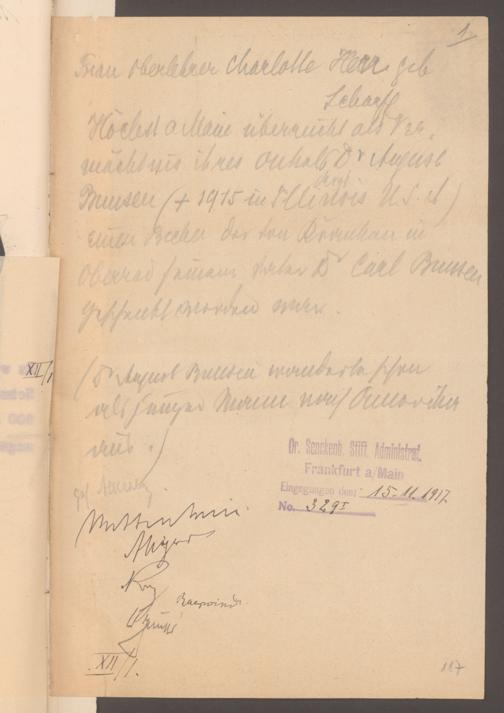 1.
Frau Oberlehrer Charlotte Herr geb
Scharff
Höchst a Main überreicht als Ver-
mächtnis ihres Onkels Dr August
Bunsen († 1915 in Illinois U. S. A)
Arzt
einen Becher der von Kranken in
Oberrad seinem Vater Dr Carl Bunsen
geschenkt worden war.
(Dr August Bunsen wanderte schon
als junger Mann nach Amerika
aus.)
Dr. Senckenb. Stift. Administrat.
Frankfurt a/Main
Eingegangen den: 15.11.1917.
No. 329 I
XII/1.
187
XII/1